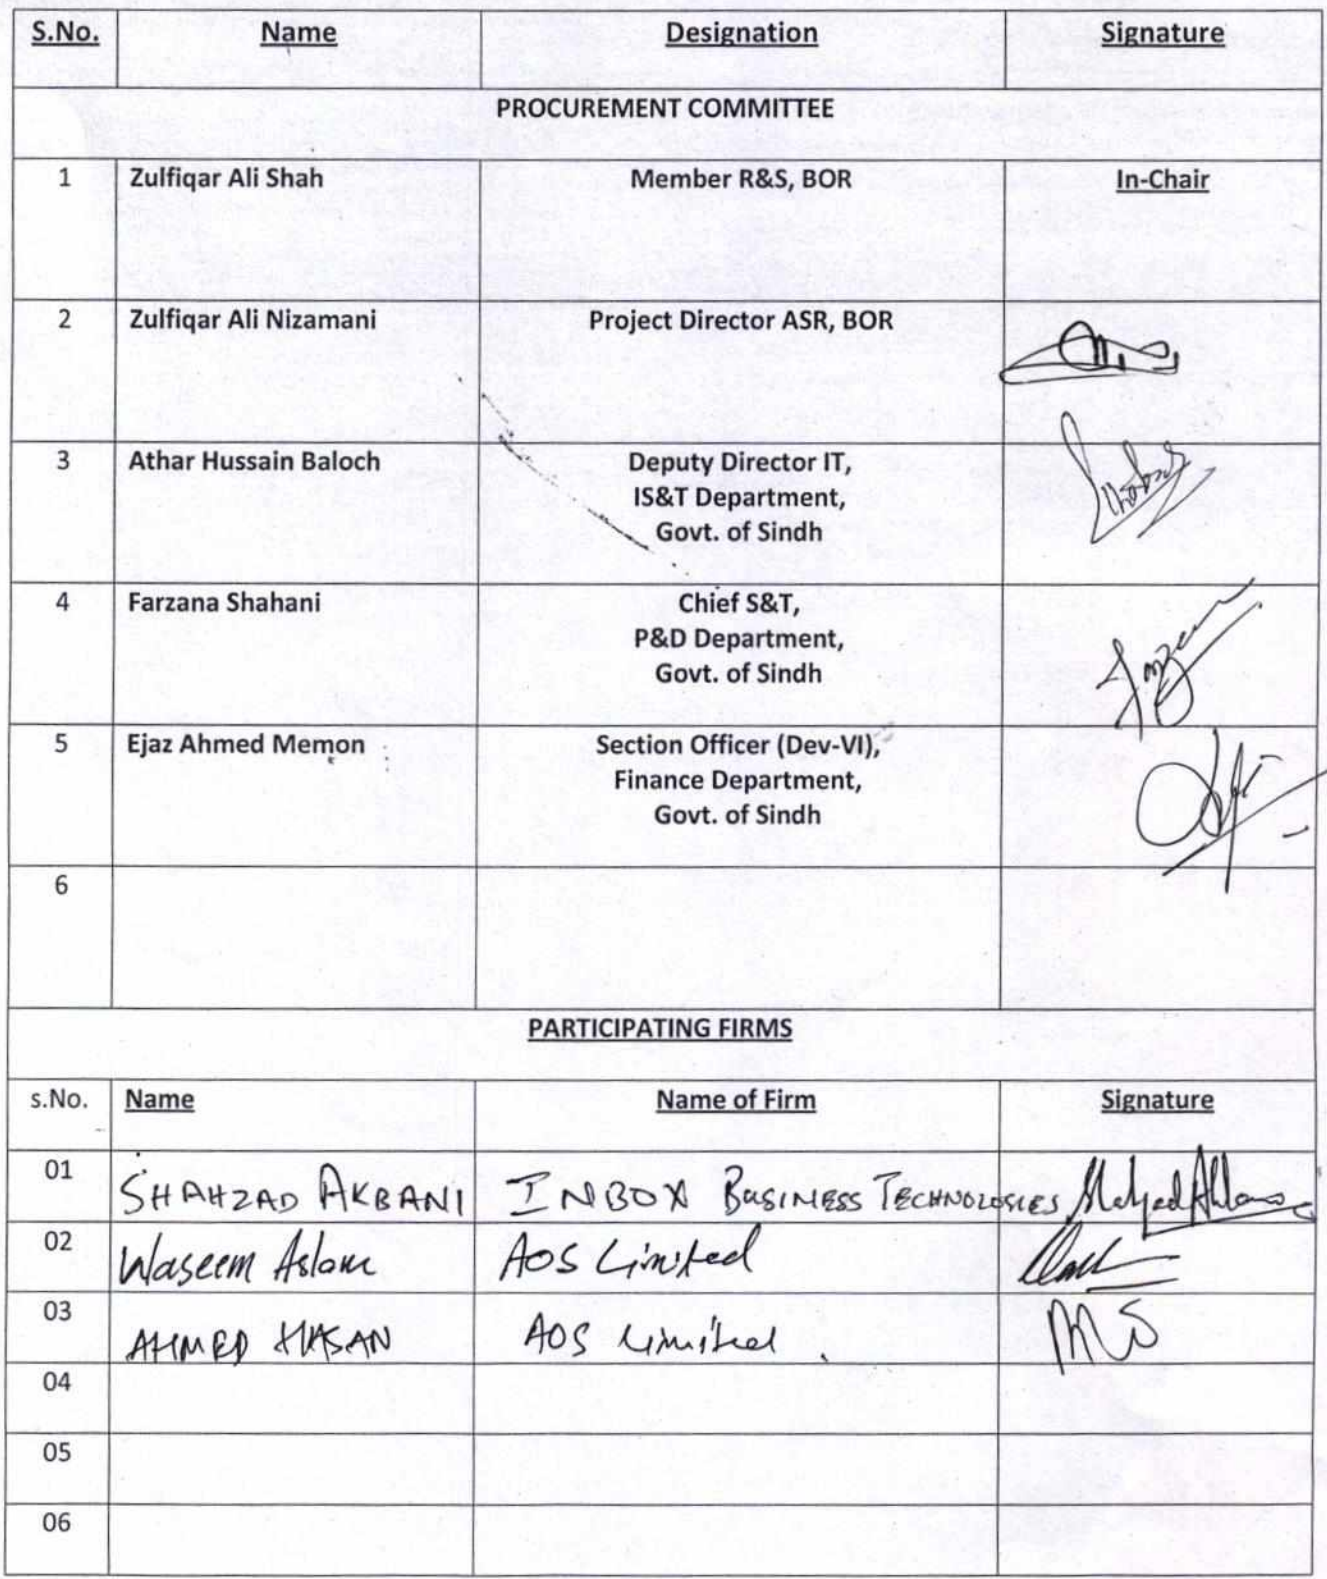 S.No. Name Designation Signature
PROCUREMENT COMMITTEE
1 Zulfiqar Ali Shah Member R&S, BOR In-Chair
2 Zulfiqar Ali Nizamani Project Director ASR, BOR
3 Athar Hussain Baloch Deputy Director IT,
IS&T Department,
Govt. of Sindh
4 Farzana Shahani Chief S&T,
P&D Department,
Govt. of Sindh
5 Ejaz Ahmed Memon Section Officer (Dev-VI),
Finance Department,
Govt. of Sindh
6
PARTICIPATING FIRMS
s.No. Name Name of Firm Signature
01 SHAHZAD AKBANI INBOX BUSINESS TECHNOLOGIES
02 Waseem Aslam AOS Limited
03 AHMED HASAN AOS Limited
04
05
06